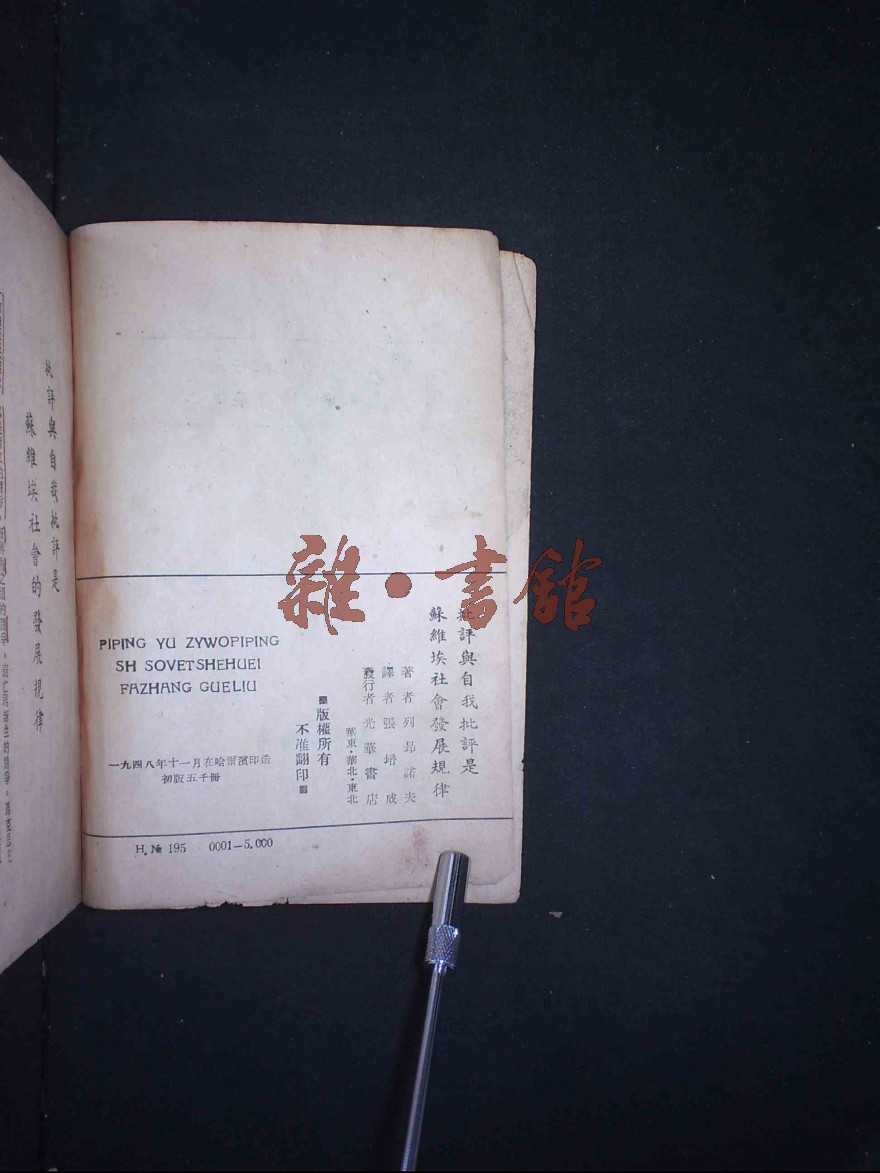 批評與自我批評是
蘇維埃社會的發展規律
批評與自我批評是
蘇維埃社會發展規律
著者列昂諾夫
譯者張培成
發行者光華書店
華東·華北·東北
版權所有
不准翻印
PIPING YU ZYWOPIPING
SH SOVETSHEHUEI
FAZHANG GUELIU
一九四八年十一月在哈爾濱印造
初版五千冊
H. № 195 0001—5.000
雜·書館